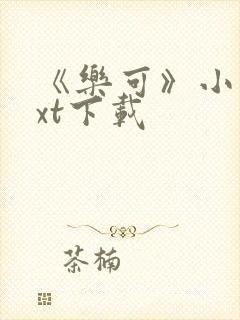 《樂可》小
xt下載
茶楠